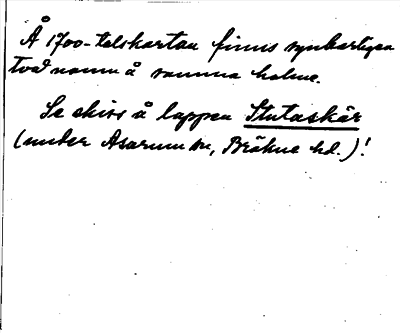 Å 1700-talskartan finns synbarligen
två namn å samma holme.
Se skiss å lappen Stutaskär
(under Asarum sn, Bräkne hd.)!